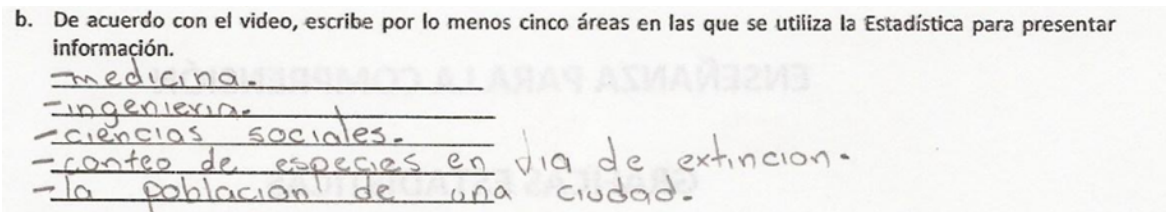 b. De acuerdo con el video, escribe por lo menos cinco áreas en las que se utiliza la Estadística para presentar
información.
-medicina.
-ingenieria.
-ciencias sociales.
-conteo de especies en via de extincion.
-la población de una ciudad.